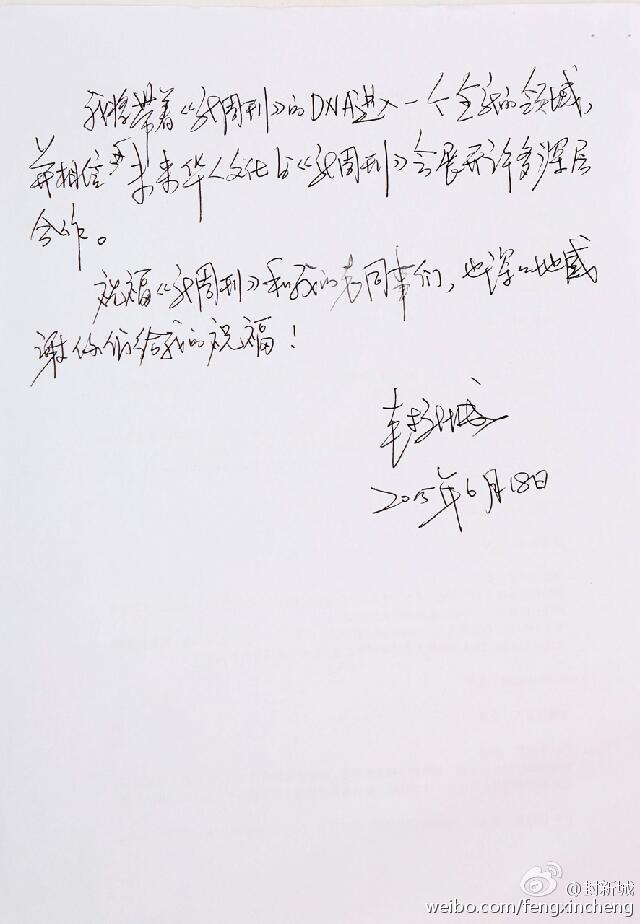 我将带着《新周刊》的DNA进入一个全新的领域，
并相信未来华人文化与《新周刊》会展开许多深层
合作。
祝福《新周刊》和我的老同事们，也深深地感
谢你们给我的祝福！
封新城
2015年6月18日
@封新城
weibo.com/fengxincheng